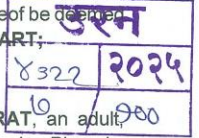 eof be deemed
ART;
उरन
४३२२ २०२५
१० / १००
RAT, an adult,